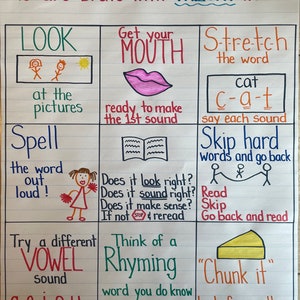 LOOK
at the
pictures
Get your
MOUTH
ready to make
the 1st sound
S-t-r-e-t-c-h
the word
cat
c-a-t
say each sound
Spell
the word
out
loud!
Does it look right?
Does it sound right?
Does it make sense?
If not STOP & reread
Skip hard
words and go back
Read
Skip
Go back and read
Try a different
VOWEL
sound
Think of a
Rhyming
word you do know
"Chunk it"